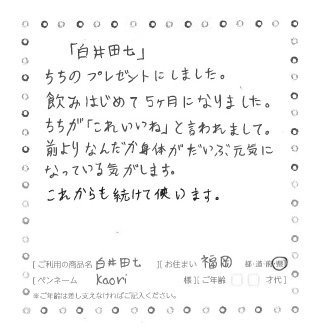 「白井田七」
ちちのプレゼントにしました。
飲みはじめて5ヶ月になりました。
ちちが「これいいね」と言われまして。
前よりなんだか身体がだいぶ元気に
なっている気がします。
これからも続けて使います。
[ご利用の商品名 白井田七 ][お住まい 福岡 都・道・府・県]
[ペンネーム Kaori 様][ご年齢 才代]
※ご年齢は差し支えなければご記入ください。